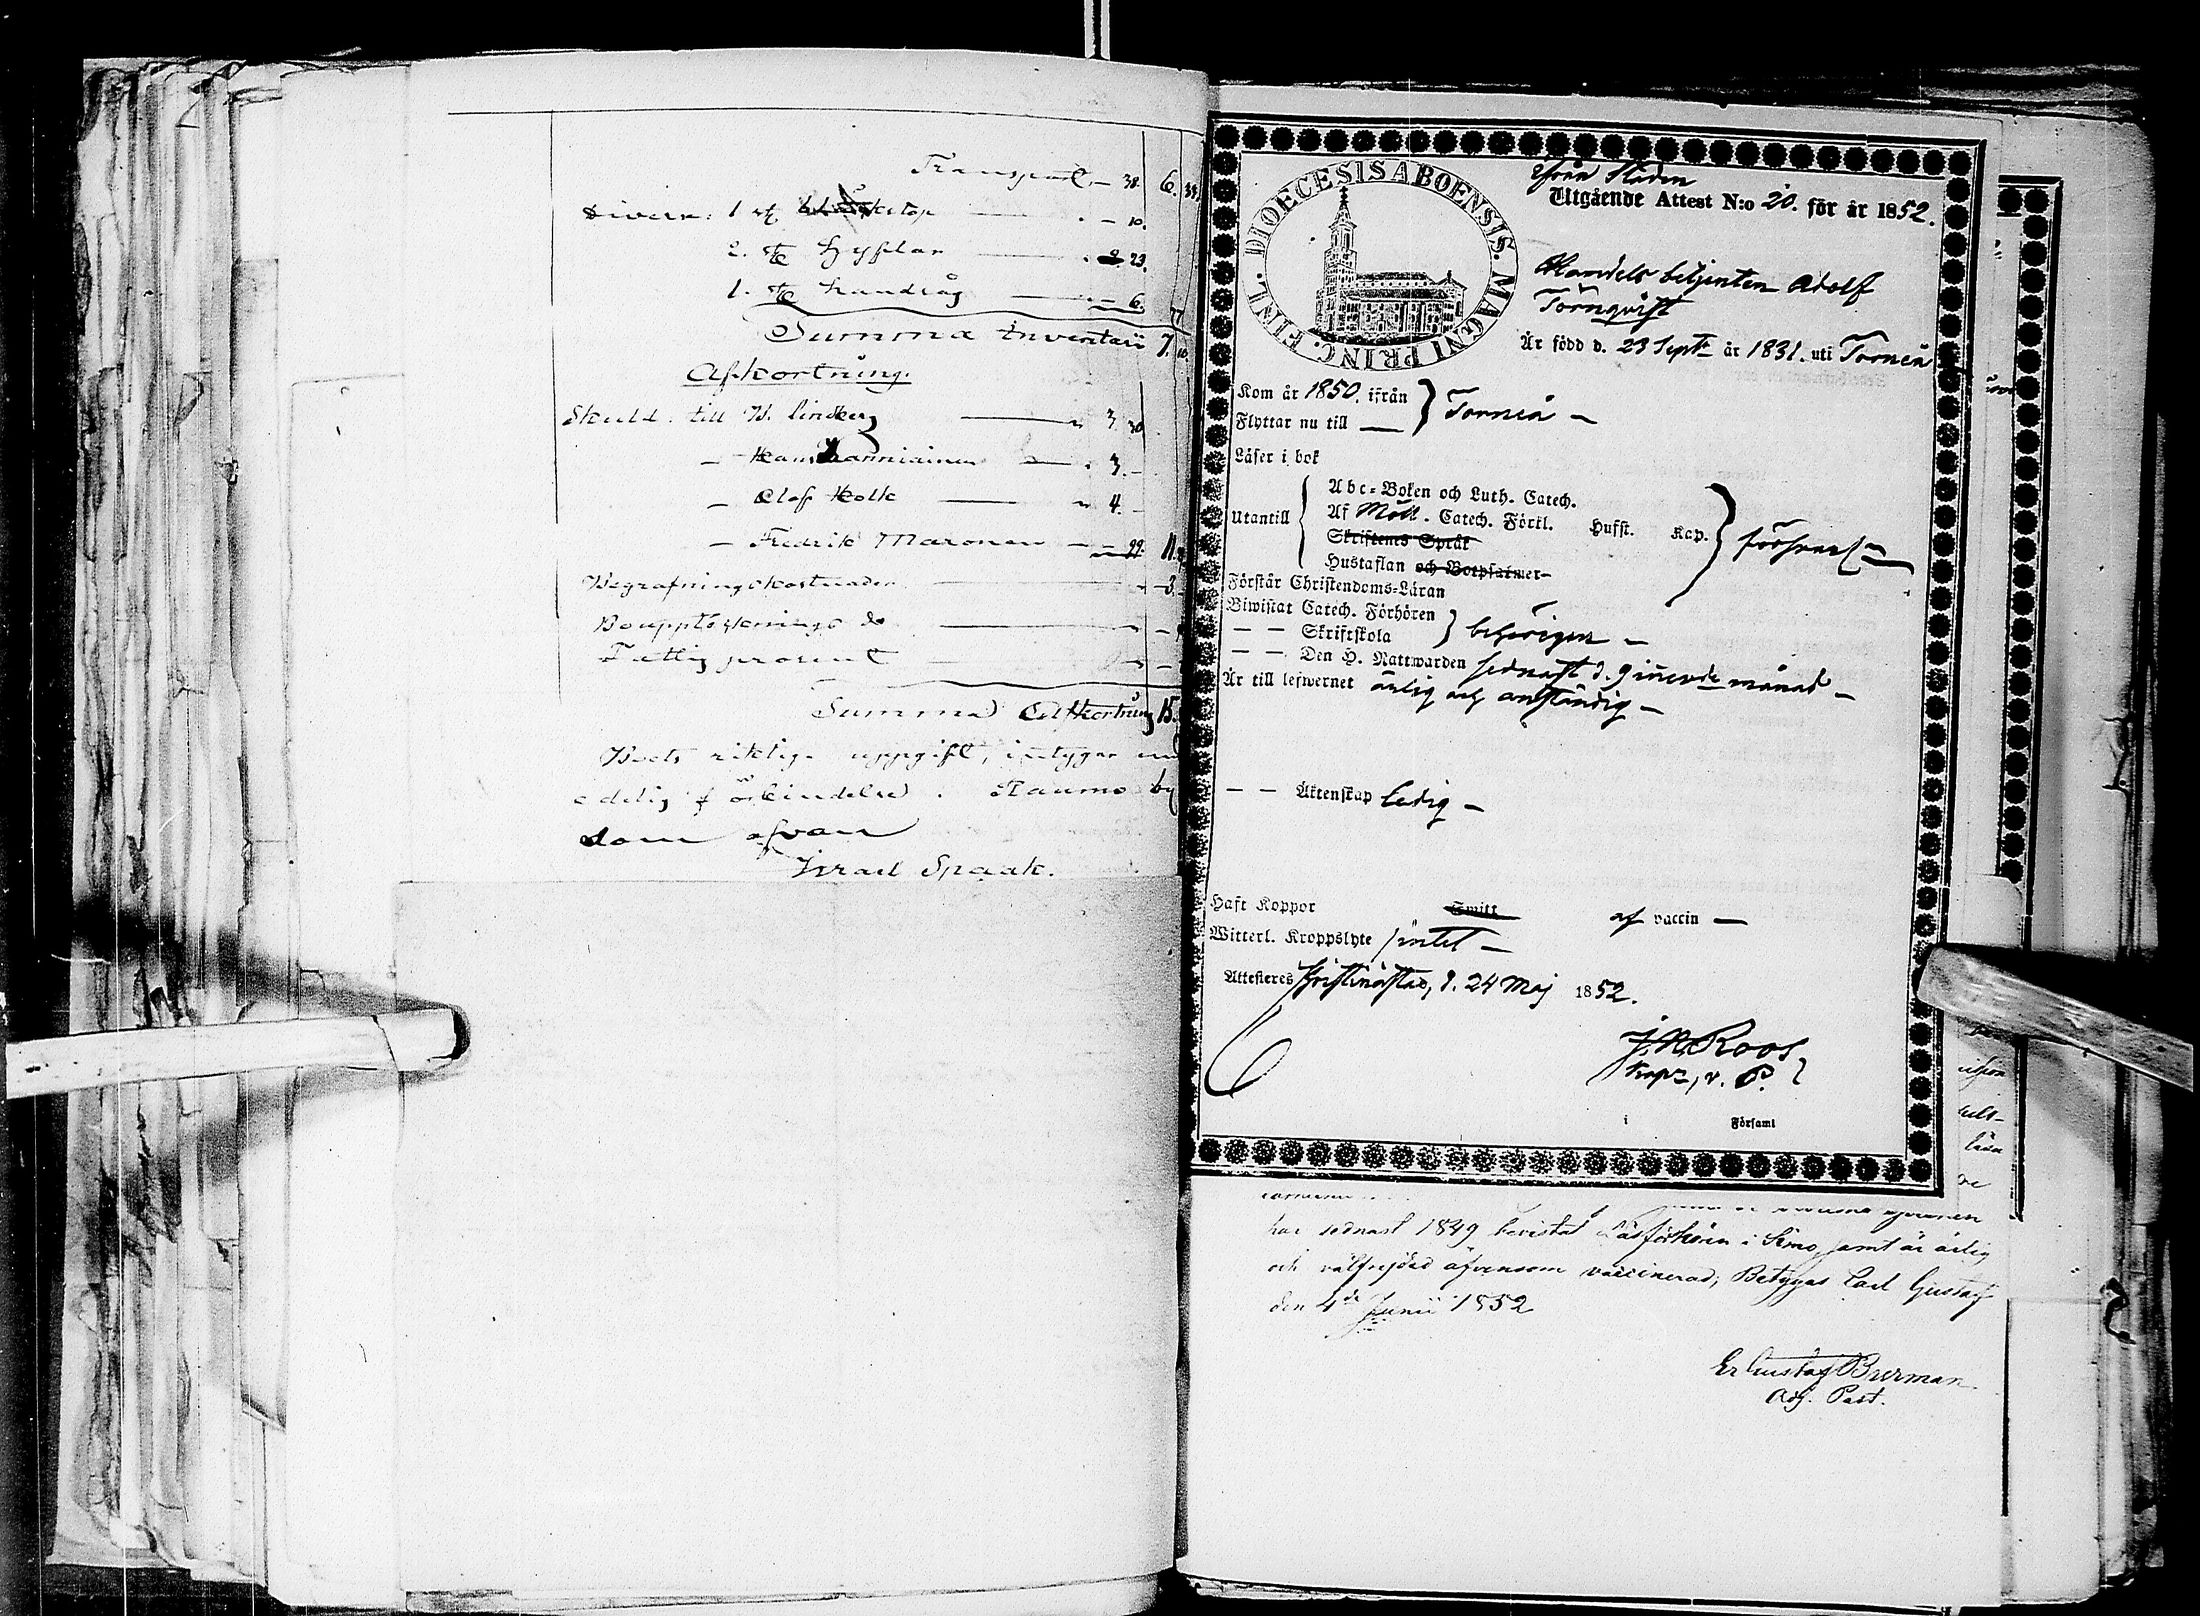 Transport – 38. 6. 33
Divers: 1 st. – 10.
2. st. Hyflar 23.
1. st. handsåg – 6.
Summa inventarii 7.
Afkortning.
Skuld till B. Lindberg 3. 30
– Hans 3. –
– Olof Kolk 4. –
– Fredrik Maronen – 22. 11.
Begrafningskostnader – 3.
Boupptecknings do –
Fattigprosent –
Summa Afkortning 15.
Boets riktiga uppgift, intygar
edelig förbindelse. Raumo by
som ofvan
Israel Spaak.
DIOECESIS ABOENSIS. MAGNI PRINC. FINL.
Ifrån Staden
Utgående Attest N:o 20. för år 1852.
Handels betjenten Adolf
Törnqvist
Är född d. 23 Sept. år 1831. uti Torneå
Kom år 1850. ifrån
Flyttar nu till — } Torneå –
Läser i bok
Utantill
Abc-Boken och Luth. Catech.
Af Möll. Catech. Förkl. Hufst. Kap.
Skriftenes Språk
Hustaflan och Botpsalmer
förswarl.
Förstår Christendoms-Läran
Biwistat Catech. Förhören
— — Skriftskola } behörigen –
— — Den H. Nattwarden sednast d. 9 innevde månad –
Är till lefwernet ärlig och anständig –
— — Äktenskap ledig –
Haft Koppor Switt af vaccin —
Witterl. Kroppslyte intet –
Attesteres Kristinestad, d. 24 Maj 1852.
J. N. Roos
Kapn, v. P.
Församl
har sednast 1849 bevistat Läsförhören i Simo, samt är ärlig
och välfrejdad äfvensom vaccinerad; Betygas Carl Gustaf
den 4de Junii 1852
Er Gustaf Burman
Adj. Past.